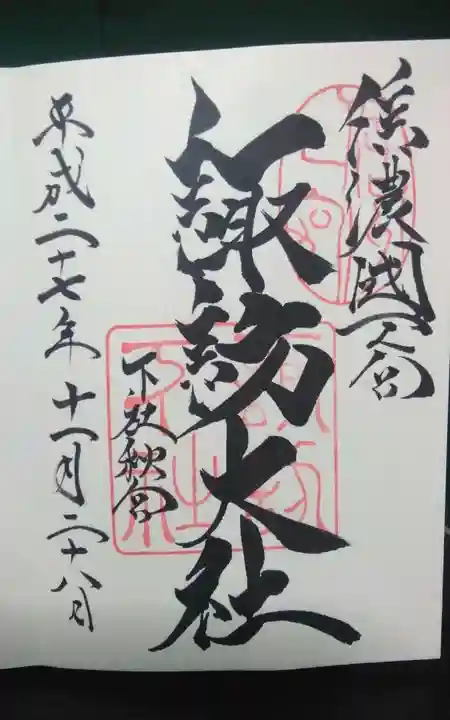 信濃國一宮
諏訪大社
下社秋宮
平成二十七年十一月二十八日